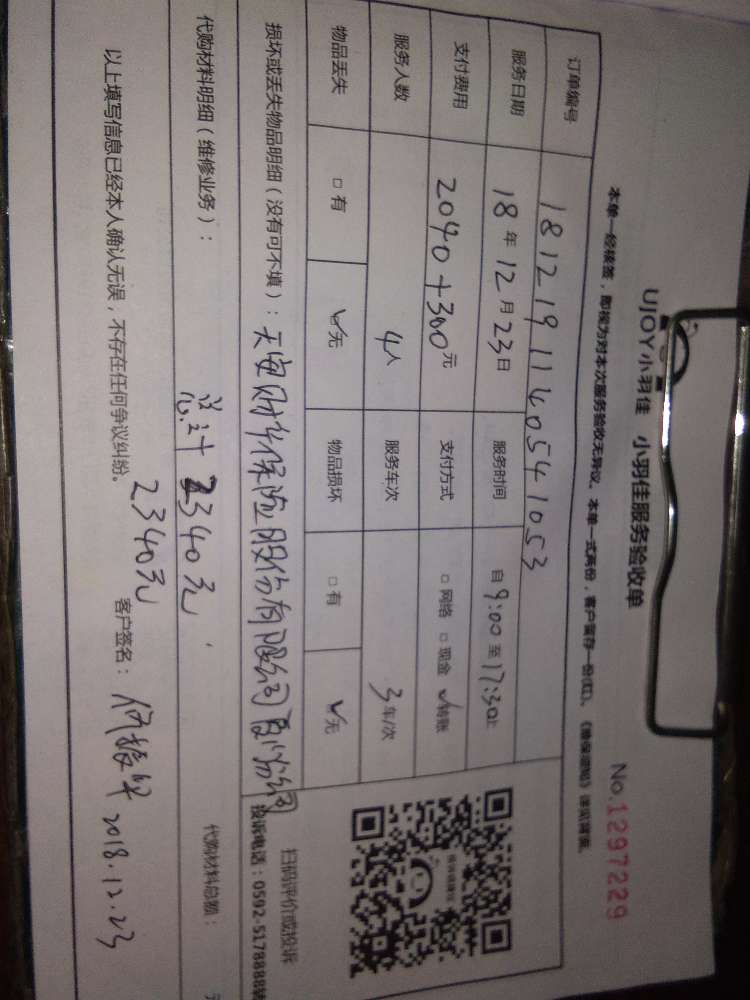 UJOY小羽佳 小羽佳服务验收单
No.1297229
本单一经核签，即视为对本次服务验收无异议，本单一式两份，客户留存一份(红)。
订单编号 181219114054 1053
服务日期 18年12月23日 服务时间 自9:00至17:30止
支付费用 2040+300元 支付方式 □网络 □现金 ☑转账
服务人数 4人 服务车次 3车/次
物品丢失 □有 ☑无 物品损坏 □有 ☑无
损坏或丢失物品明细（没有可不填）：天安财产保险股份有限公司厦门分公司
代购材料明细（维修业务）： 代购材料总额：
总计2340元
以上填写信息已经本人确认无误，不存在任何争议纠纷。
2340元
客户签名： 2018.12.23
扫码评价或投诉
投诉电话：0592-5178888转